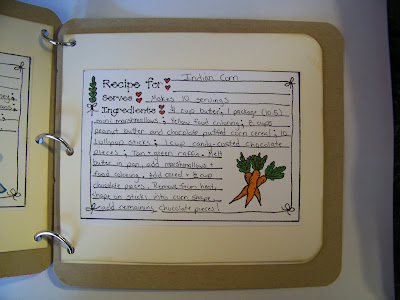 Recipe for Indian Corn
Serves Makes 10 servings
Ingredients 1/4 cup butter; 1 package (10.5)
mini marshmallows; Yellow food coloring; 8 cups
peanut butter and chocolate puffed corn cereal; 10
lollipop sticks; 1 cup candy-coated chocolate
pieces; Tan + green raffia. Melt
butter in pan, add marshmallows +
food coloring. Add cereal + 1/2 cup
chocolate pieces. Remove from heat,
shape on sticks into corn shape,
add remaining chocolate pieces!